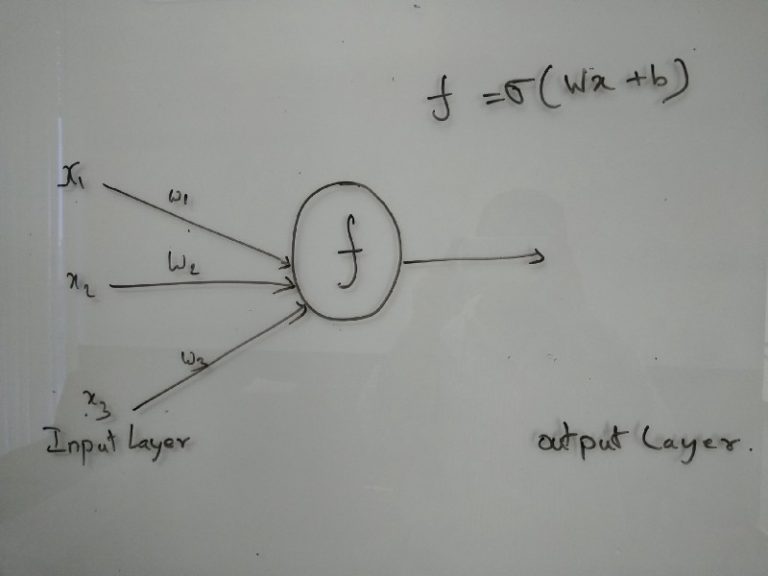 f = σ(Wx + b)
x₁
w₁
f
w₂
x₂
w₃
x₃
Input Layer
output Layer.